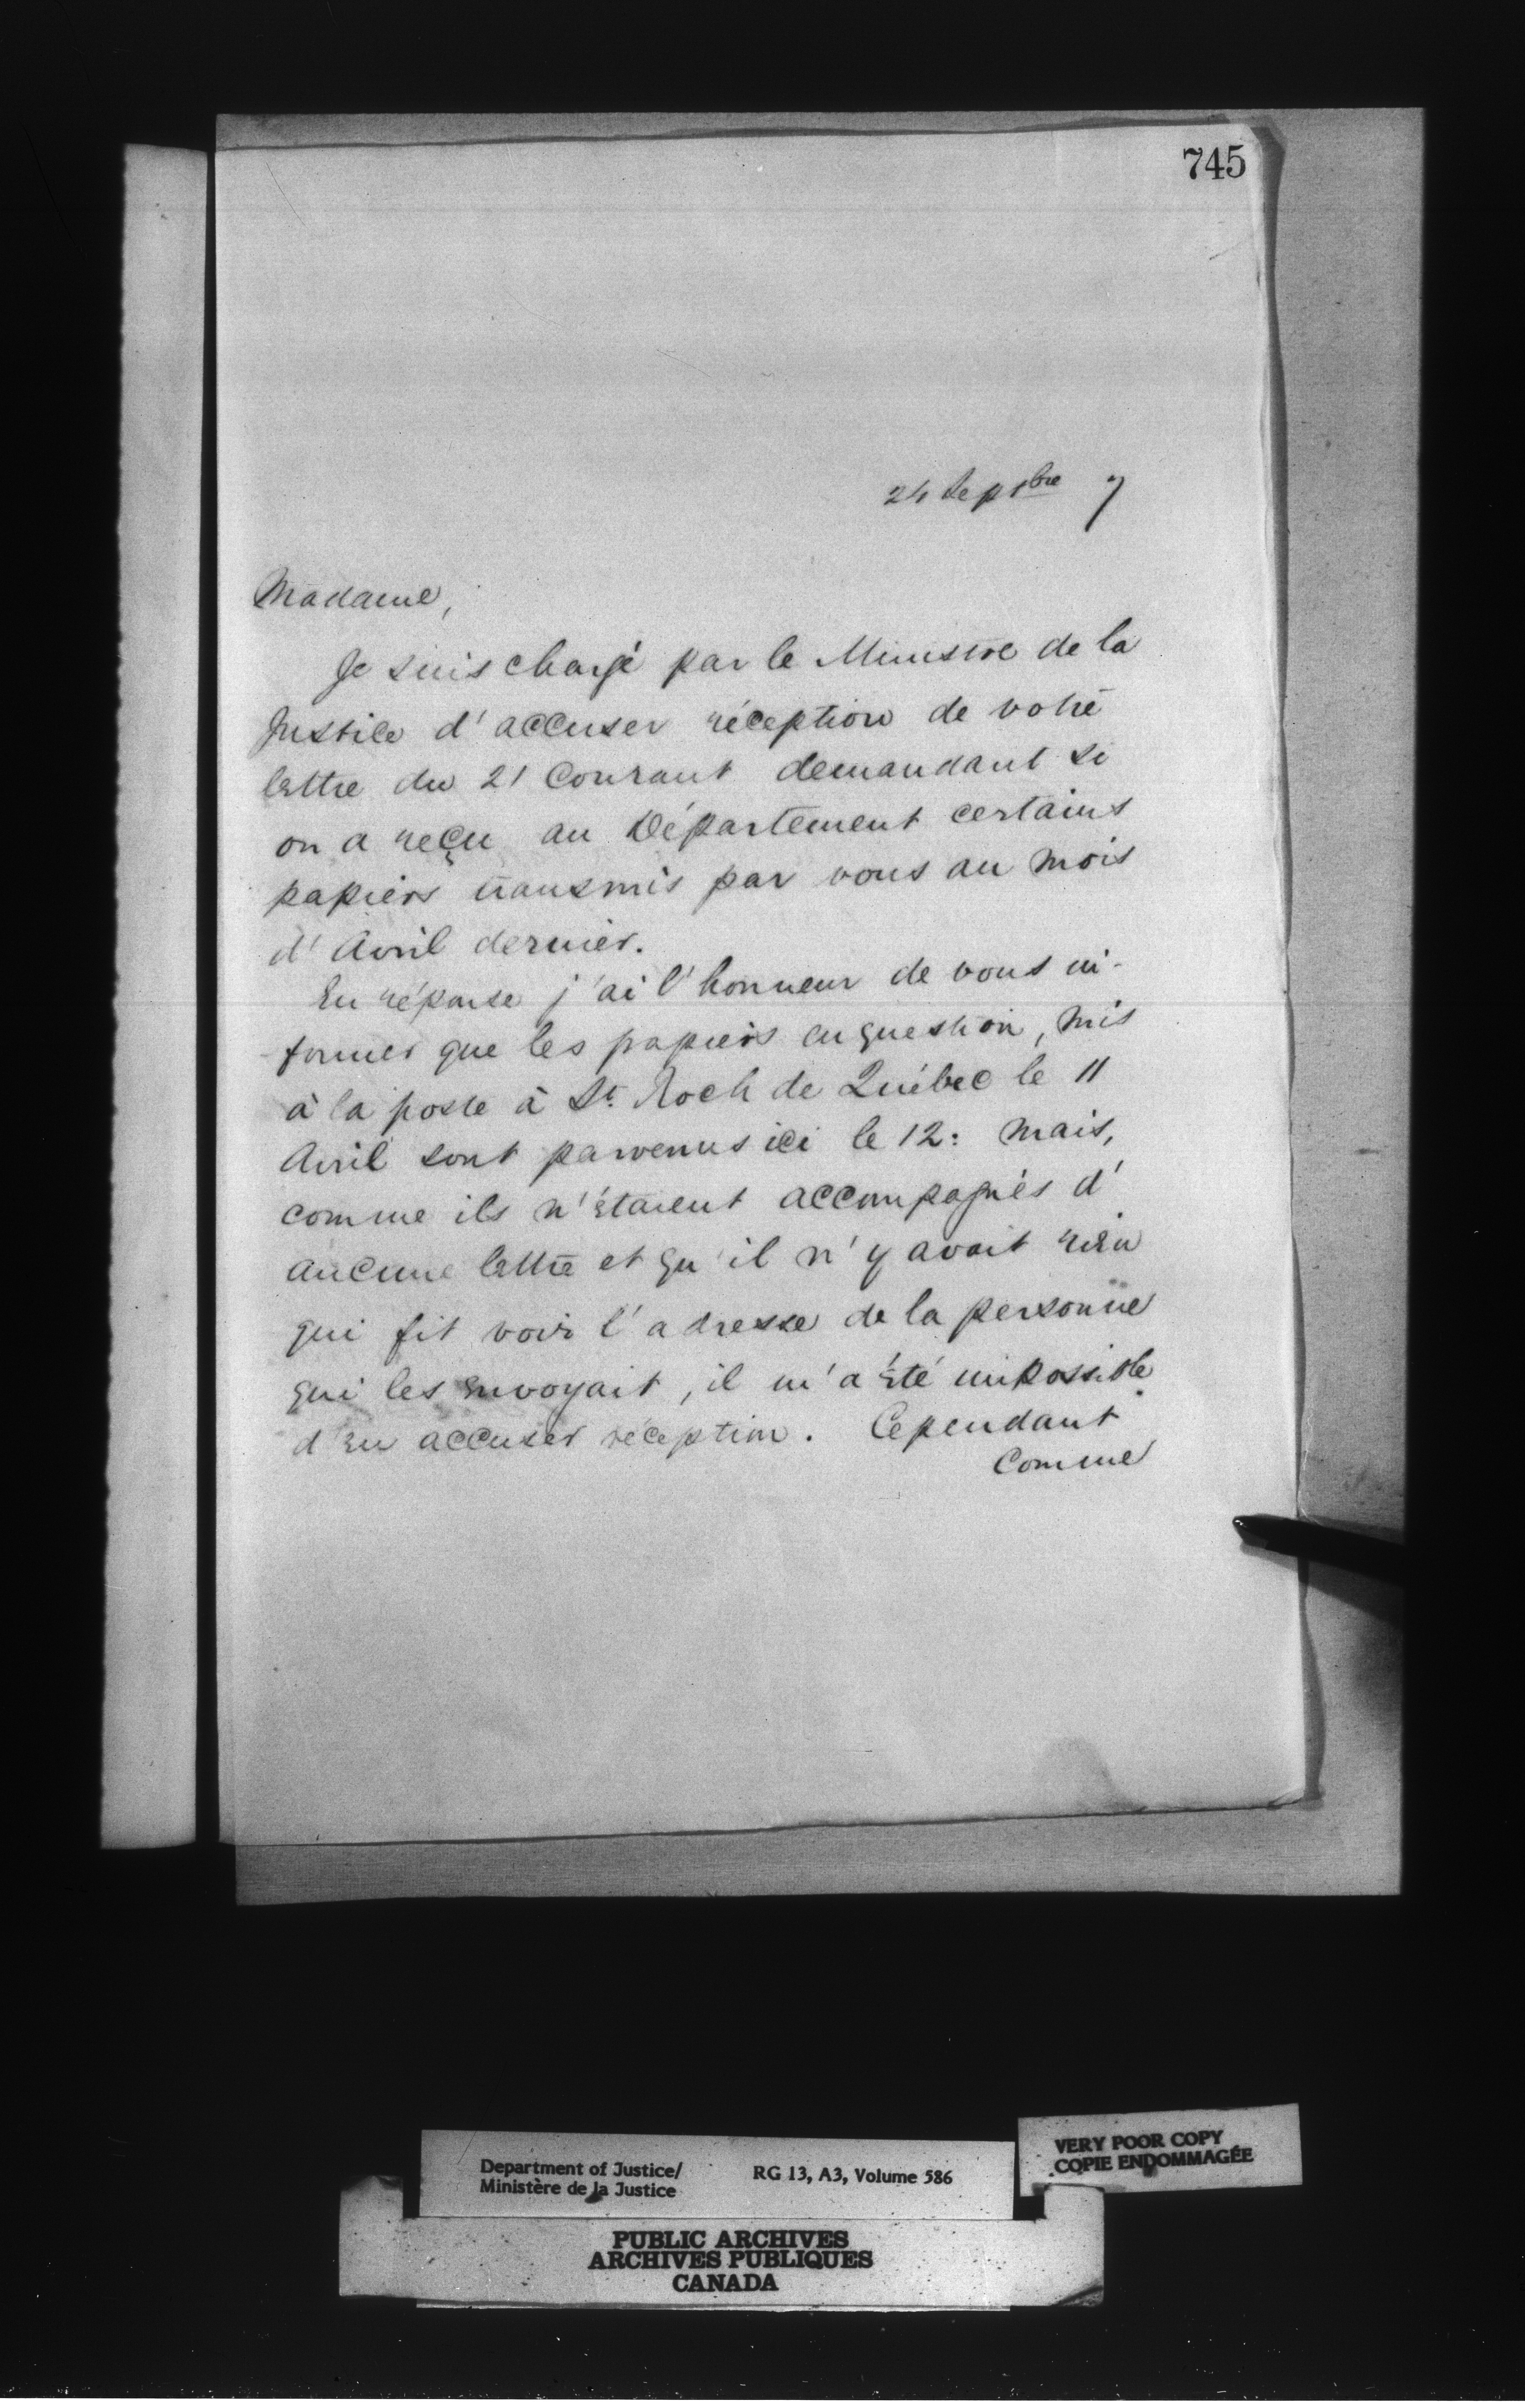 745
24 Septbre 7
Madame,
Je suis chargé par le Ministre de la
Justice d'accuser réception de votre
lettre du 21 Courant demandant si
on a reçu au Département certains
papiers transmis par vous au mois
d'Avril dernier.
En réponse j'ai l'honneur de vous in-
former que les papiers en question, mis
à la poste à St. Roch de Québec le 11
Avril sont parvenus ici le 12: Mais,
comme ils n'étaient accompagnés d'
aucune lettre et qu'il n'y avait rien
qui fit voir l'adresse de la personne
qui les envoyait, il m'a été impossible
d'en accuser réception. Cependant
Comme
Department of Justice/ RG 13, A3, Volume 586
Ministère de la Justice
VERY POOR COPY
COPIE ENDOMMAGÉE
PUBLIC ARCHIVES
ARCHIVES PUBLIQUES
CANADA